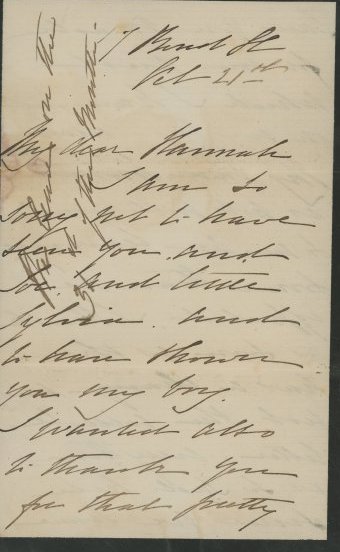 7 Bond St
Oct 21st
My dear Hannah
I am so
sorry not to have
seen you and
Joe. and little
Sylvia. and
to have shown
you my boy.
I wanted also
to thank you
for that pretty
on the
of this month.